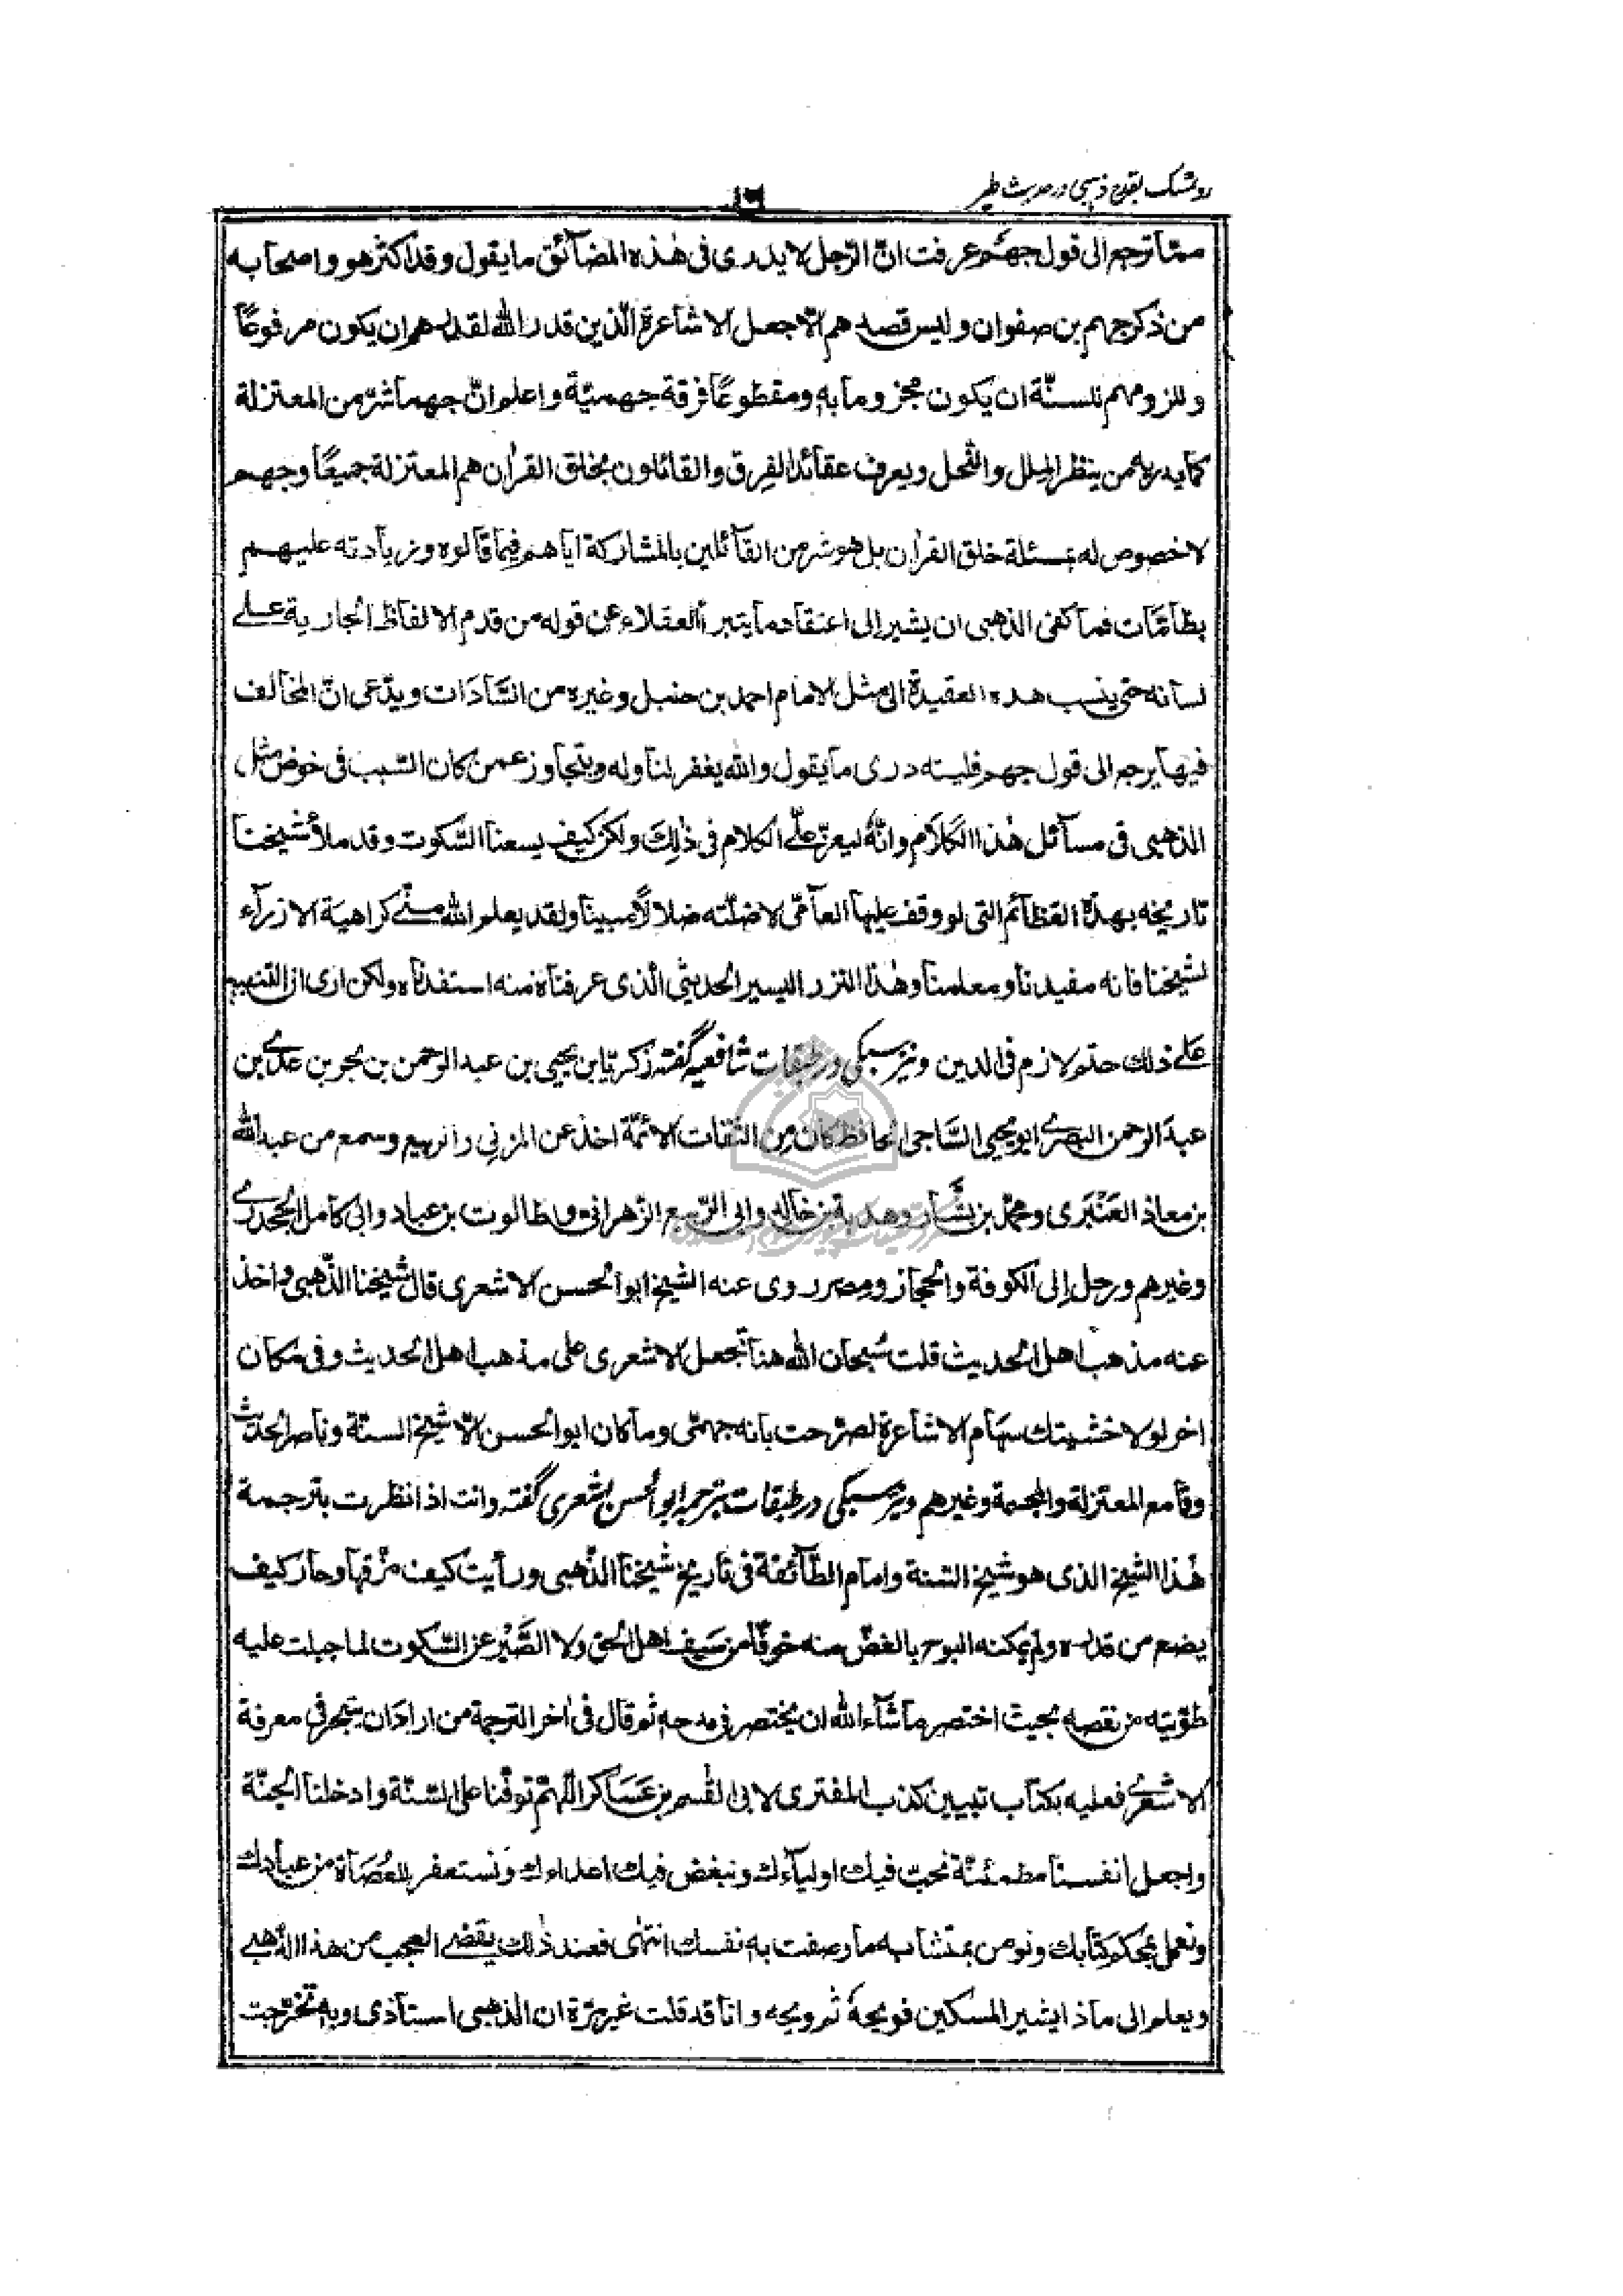 رد تمسک بقدح ذهبی در حدیث طیر
۱۶
ممّا ترجع الی قول جهم عرفت انّ الرّجل لا یدری فی هٰذه المضآئق ما یقول وقد اکثر هو واصحابه
من ذکر جهم بن صفوان ولیس قصدهم الّا جعل الاشاعرة الّذین قدر اللّٰه لقدرهم ان یکون مرفوعًا
وللزومهم للسنّة ان یکون مجزومًا به ومقطوعًا فرقة جهمیّةً واعلم انّ جهما شرّ من المعتزلة
کما یدریه من ینظر الملل والنّحل ویعرف عقآئد الفِرق والقائلون بخلق القرآن هم المعتزلة جمیعًا وجهم
لا خصوص له بمسئلة خلق القرآن بل هو شر من القآئلین بالمشارکة ایّاهم فیما قالوه وزیادته علیهم
بطآمّات فما کفی الذهبی ان یشیر الی اعتقاد ما یتبرأ العقلاء عن قوله من قدم الالفاظ الجاریة علے
لسانه حتی ینسب هذه العقیدة الی مثل الامام احمد بن حنبل وغیره من السَّادَات ویدّعی انّ المخالف
فیها یرجع الی قول جهم فلیته دری ما یقول واللّٰه یغفر لنا وله ویتجاوز عمن کان السّبب فی خوض مثل
الذهبی فی مسآئل هٰذا الکَلَام وانّه لیعزّ علیّ الکلام فی ذٰلِكَ ولکن کیف یسعنا السّکوت وقد ملأ شیخنا
تاریخه بهذه العظآئم التی لو وقف علیها العآمّی لاضلّته ضلالًا مبینا ولقد یعلم اللّٰه منّے کراهیة الازرآء
لشیخنا فانه مفیدنا ومعلمنا وهٰذا النزر الیسیر الحدیثی الّذی عرفناه منه استفدناه ولکن اری ان التنبیه
علے ذلك حتم لازم فی الدین ونیز سبکی در طبقات شافعیه گفته زکریّا بن یحیی بن عبد الرحمن بن بحر بن عدے بن
عبد الرحمن البصرے ابو یحیی السّاجی الحافظ کان من الثقات الائمّة اخذ عن المزنی والربیع وسمع من عبد اللّٰه
بن معاذ العَنْبَری ومحمّد بن بشّار وهدبة بن خالد وابی الرّبیع الزهرانی وطالوت بن عباد وابی کامل الجحدرے
وغیرهم ورحل اِلی الکوفة والحجاز ومصر روی عنه الشیخ ابو الحسن الاشعری قال شیخنا الذّهبی واخذ
عنه مذهب اهل الحدیث قلت سُبحان اللّٰه هنا تجعل الاشعری علی مذهب اهل الحدیث وفی مکان
اخر لولا خشیتك سهام الاشاعرة لصرّحت بانه جهمّی وما کان ابو الحسن الّا شیخ السنّة وناصر الحدیث
وقامع المعتزلة والمجسمة وغیرهم ونیز سبکی در طبقات بترجمه ابو الحسن اشعری گفته وانت اذا نظرت بترجمة
هٰذا الشیخ الذی هو شیخ السّنة وامام الطّآئفة فی تاریخ شیخنا الذّهبی ورأیت کیف مزّقها وحار کیف
یضع من قدره ولم یمکنه البوح بالغضّ منه خوفًا من سَیف اهل الحق ولا الصَّبْر عن السّکوت لما جبلت علیه
طویّته من نقصه بحیث اختصر ما شآء اللّٰه ان یختصر فی مدحه ثم قال فی اٰخر الترجمة من ارادَ ان یتبحر فی معرفة
الاشعرے فعلیه بکتاب تبیین کذب المفتری لابی القٰسم بن عَسَاکر اللّٰهمّ توفّنا علی السّنّة وادخلنا الجنّة
واجعل اَنفسنا مطمئنّة نحبّ فیك اولیآءك ونبغض فیك اعداءك ونستغفر للعُصَاة من عبادك
ونعمل بمحکم کتابك ونومن بمتشابه ما وصفت به نفسك انتهٰی فعند ذٰلك یقضے العجب من هذا الذّهبے
ویعلم الی ماذا یشیر المسکین فویحهٗ ثم ویحه وانا قد قلت غیر مرّة ان الذهبی استاذی وبه تخرّجت